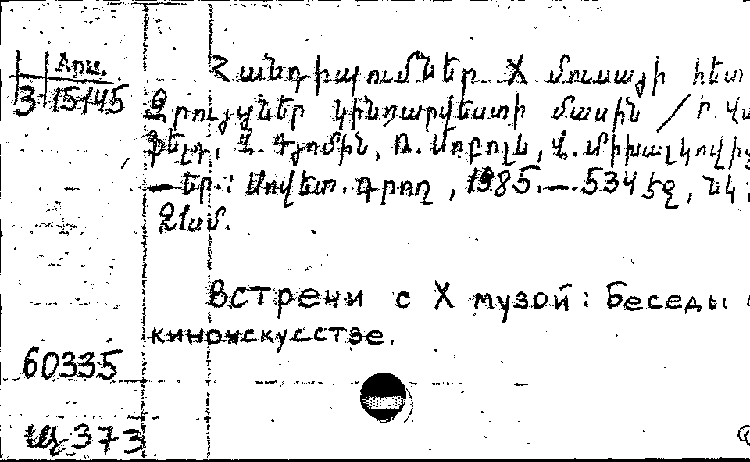 Հրապ.
3 15145
Հանդիպումներ X մուսայի հետ
Զրույցներ կինոարվեստի մասին / Ի. Վա
ֆելդ, Վ. Դյոմին, Ռ. Սոբոլև, Վ. Միխալկովիչ
— Եր.: Սովետ. գրող, 1985. — 534 էջ, նկ.;
21սմ.
Встречи с X музой: Беседы о
киноискусстве.
60335
373